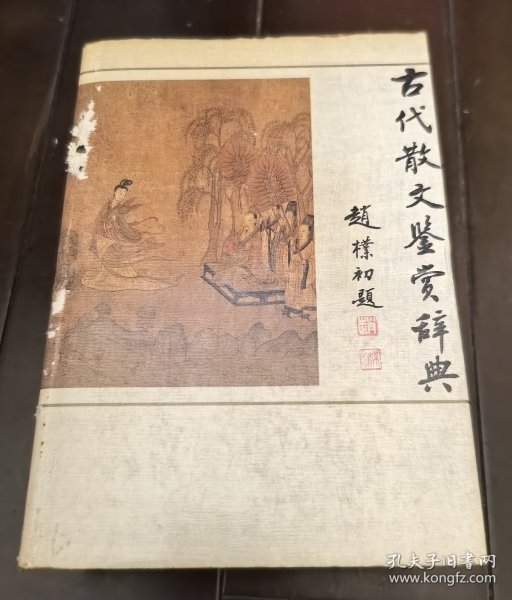 古代散文鉴赏辞典
趙樸初題
孔夫子旧书网
www.kongfz.com